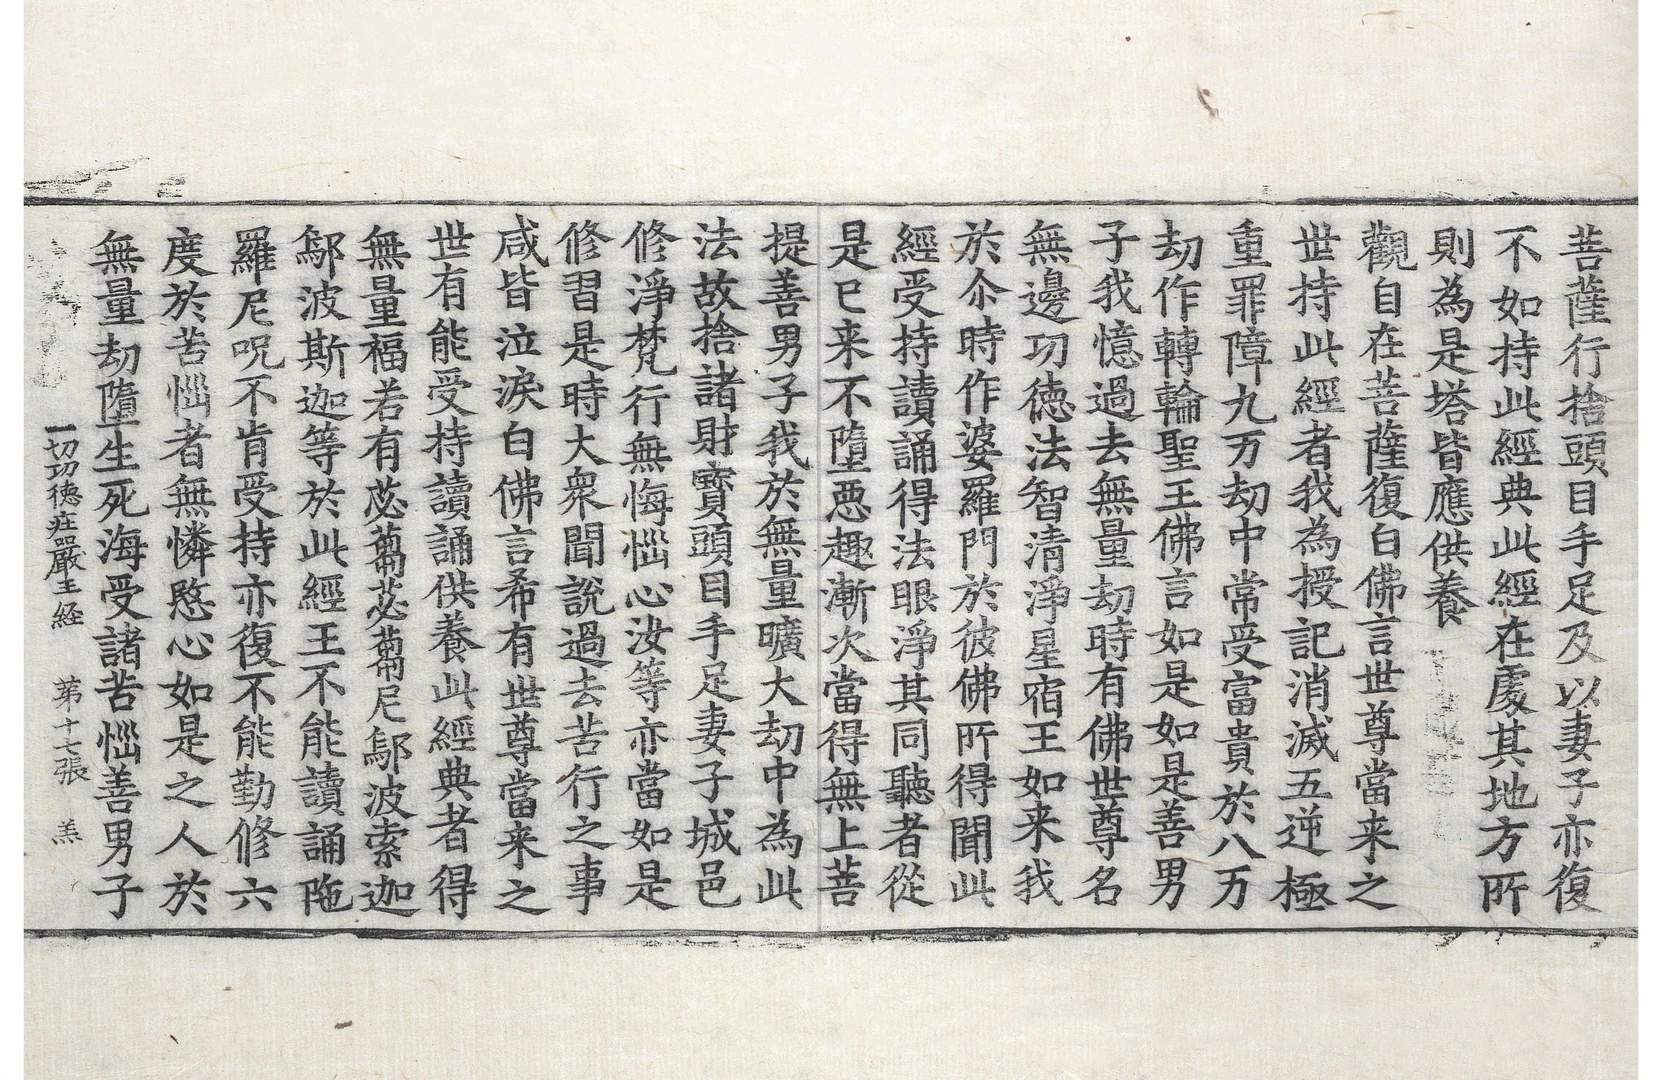 菩薩行捨頭目手足及以妻子亦復
不如持此經典此經在處其地方所
則為是塔皆應供養
觀自在菩薩復白佛言世尊當来之
世持此經者我為授記消滅五逆極
重罪障九万劫中常受富貴於八万
劫作轉輪聖王佛言如是如是善男
子我憶過去無量劫時有佛世尊名
無邊功德法智清淨星宿王如来我
於尒時作婆羅門於彼佛所得聞此
經受持讀誦得法眼淨其同聽者從
是已来不墮惡趣漸次當得無上菩
提善男子我於無量曠大劫中為此
法故捨諸財寶頭目手足妻子城邑
修淨梵行無悔惱心汝等亦當如是
修習是時大衆聞說過去苦行之事
咸皆泣淚白佛言希有世尊當来之
世有能受持讀誦供養此經典者得
無量福若有苾蒭苾蒭尼鄔波索迦
鄔波斯迦等於此經王不能讀誦陁
羅尼呪不肯受持亦復不能勤修六
度於苦惱者無憐愍心如是之人於
無量劫墮生死海受諸苦惱善男子
一切功德莊嚴王経　第十七張　羔